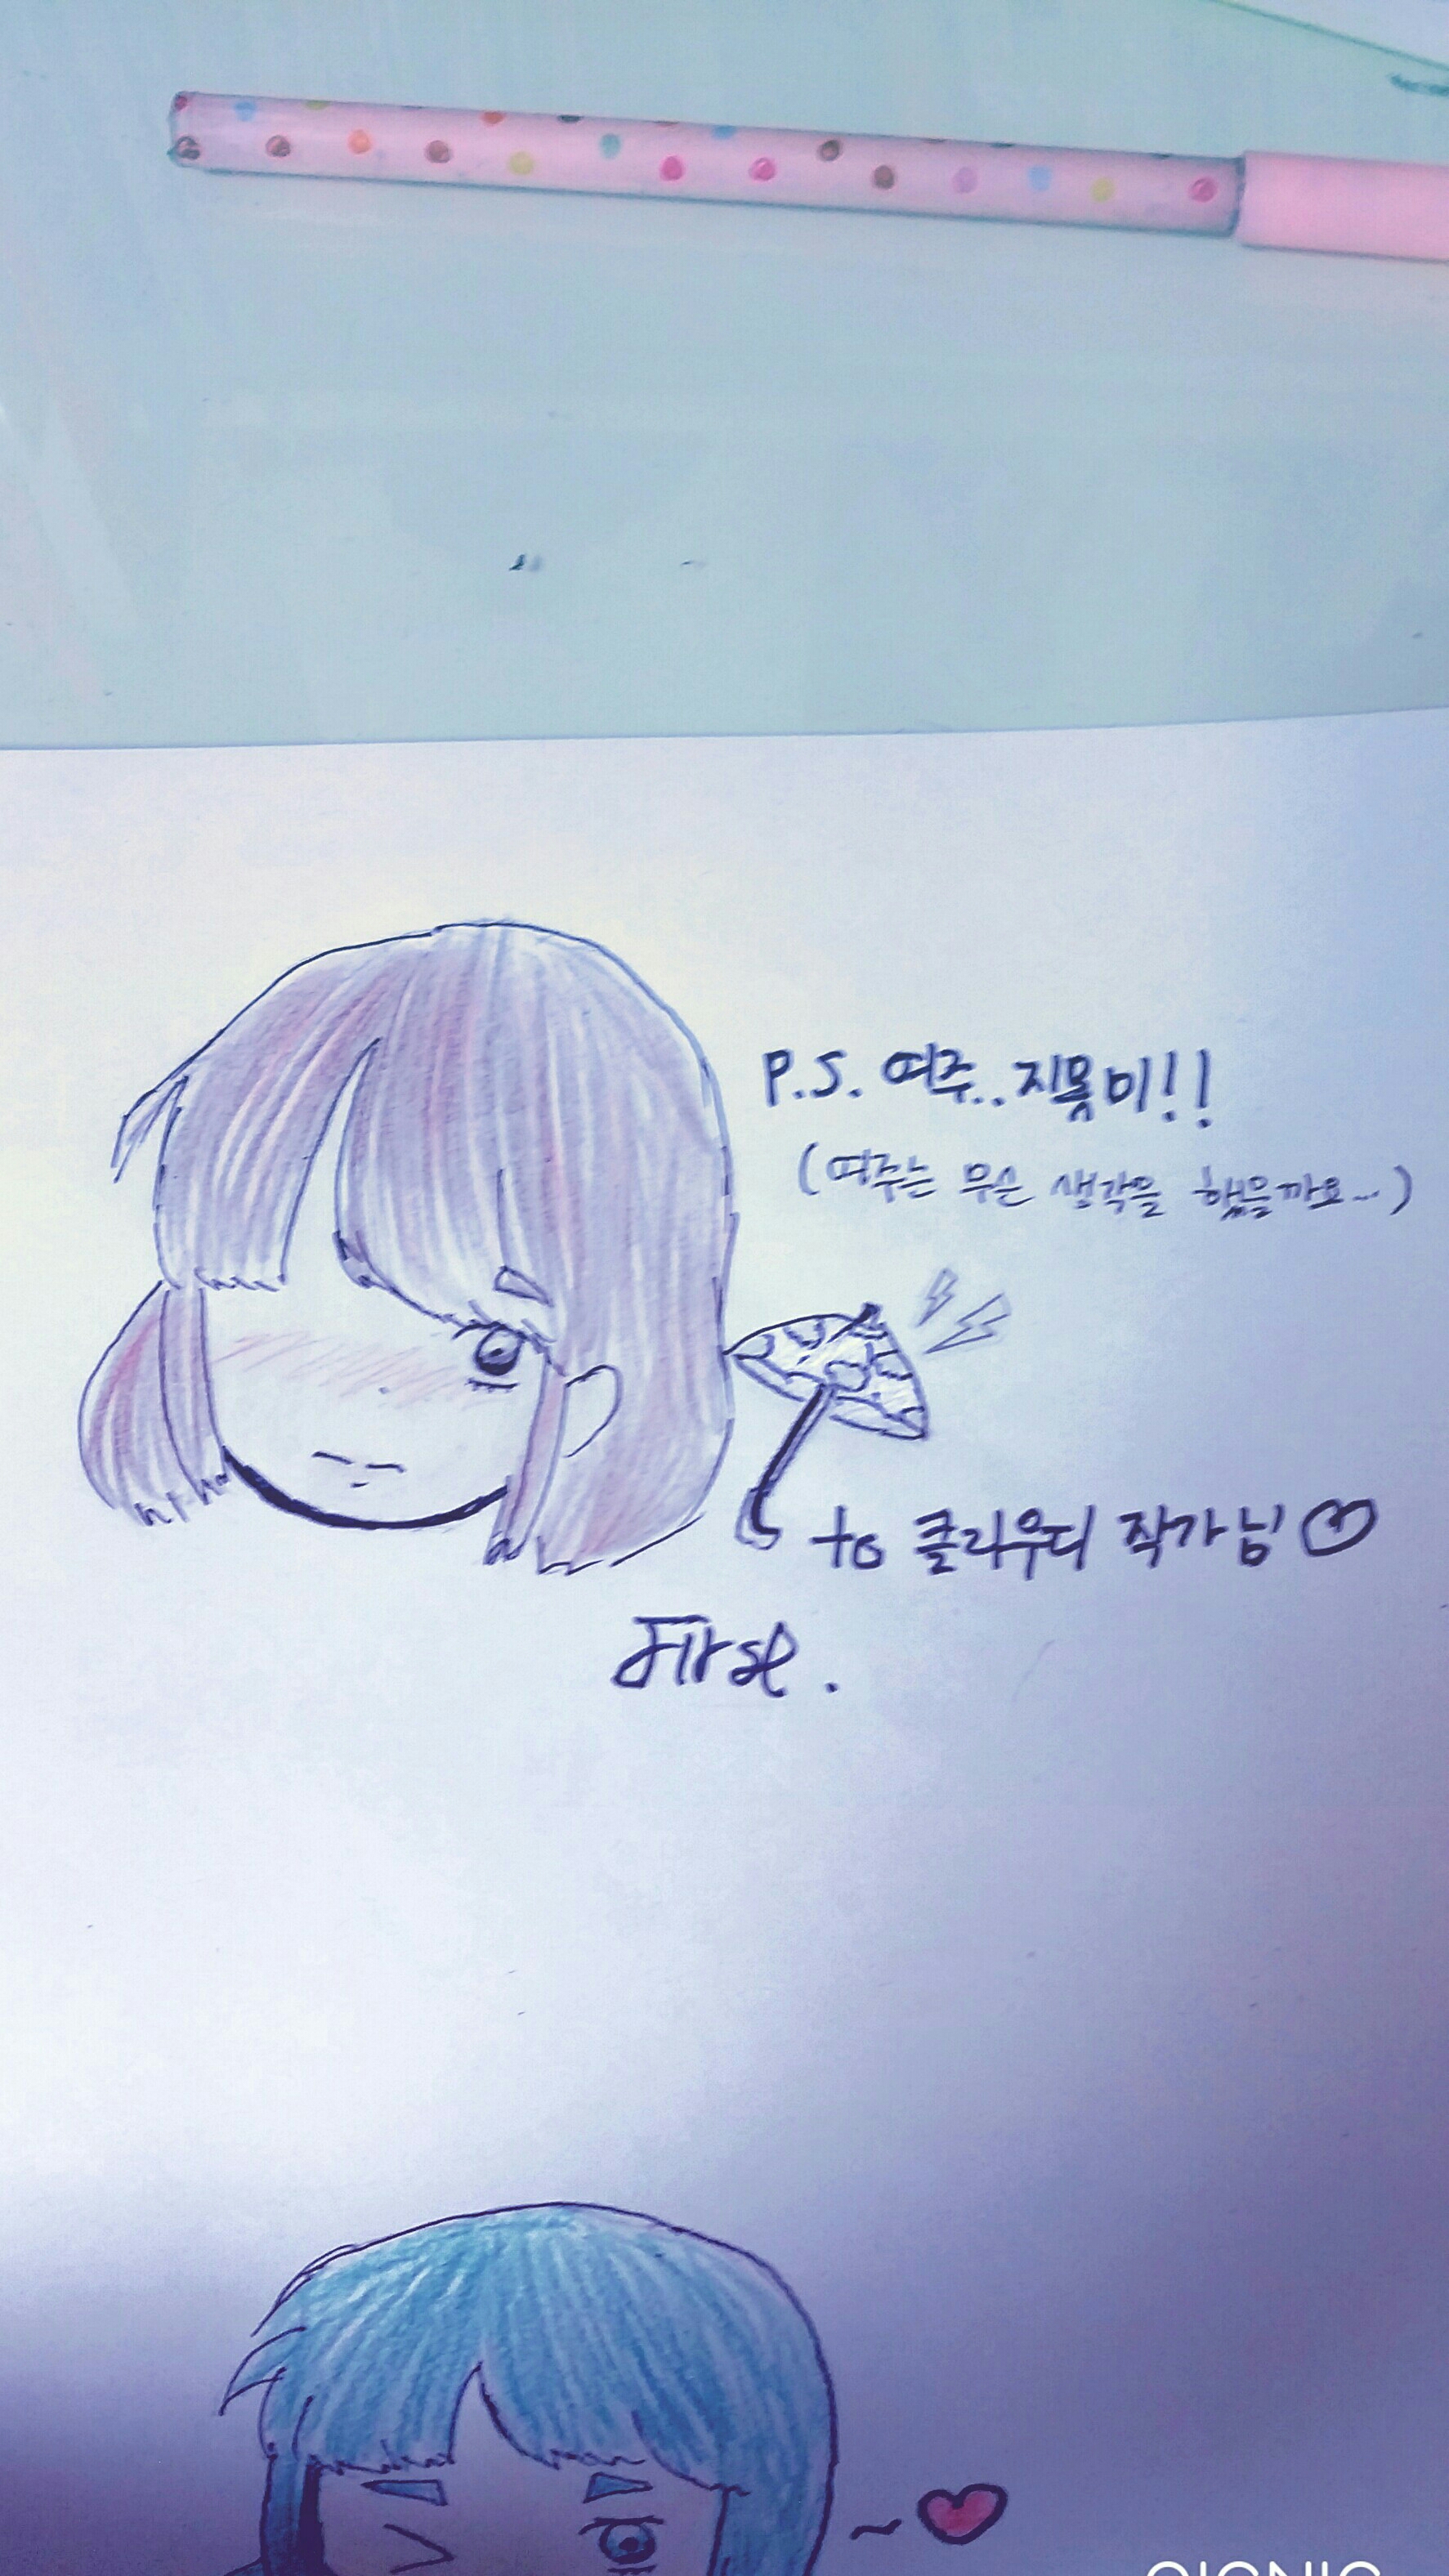 P.S. 여주..지못미!!
(여주는 무슨 생각을 했을까요...)
to 클라우디 작가님♡
First.